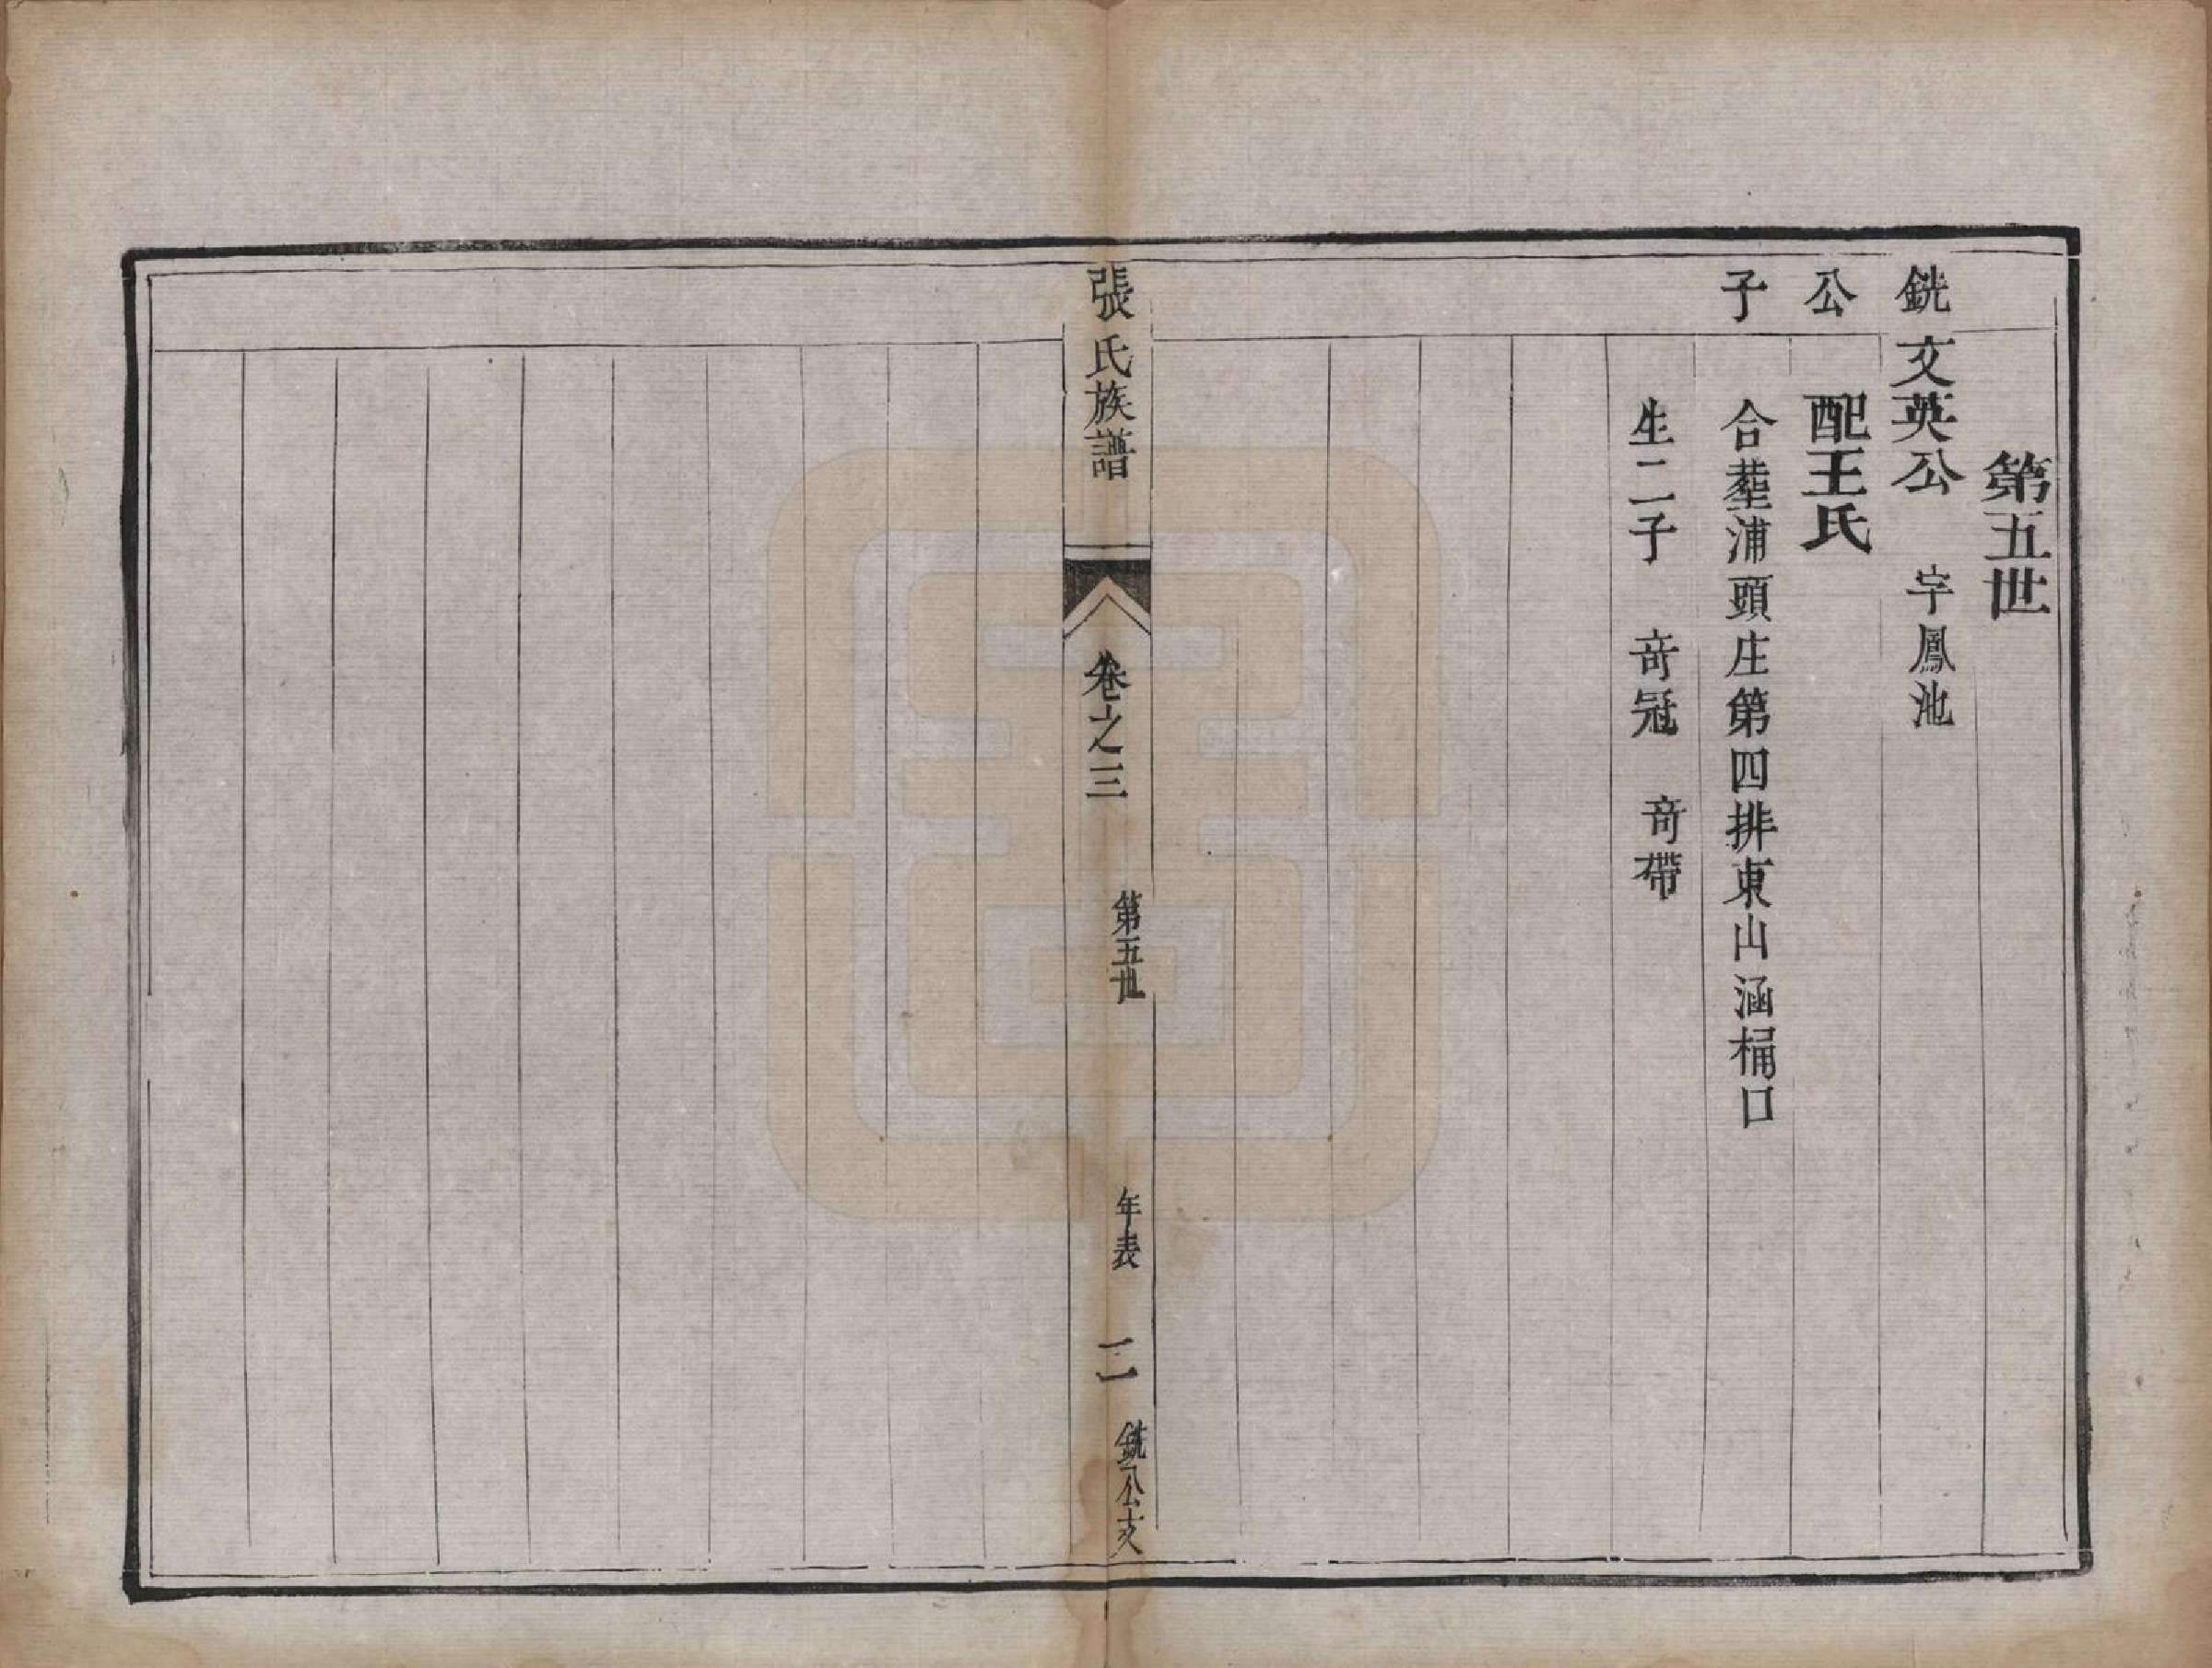 第五世
銑 文英公 字鳳池
公 配王氏
子 合塟浦頭庄第四排東山涵桶口
生二子 竒冠 竒帶
張氏族譜 卷之三 第五世 年表 二 銑公支